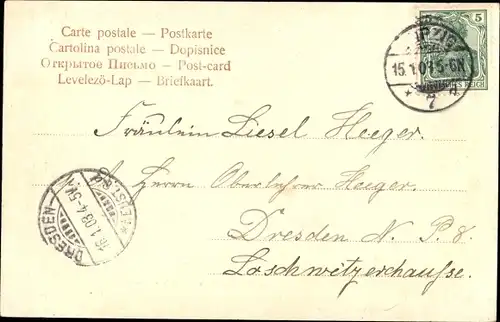 Carte postale — Postkarte
Cartolina postale — Dopisnice
Открытое Письмо — Post-card
Levelező-Lap — Briefkaart.
5
15.1.03. 5-6N.
* 7 *
DRESDEN
16.1.03. 4-5V.
Fräulein Liesel Heeger.
Herrn Oberlehrer Heeger.
Dresden N. P. 8.
Loschwitzerchaussee.